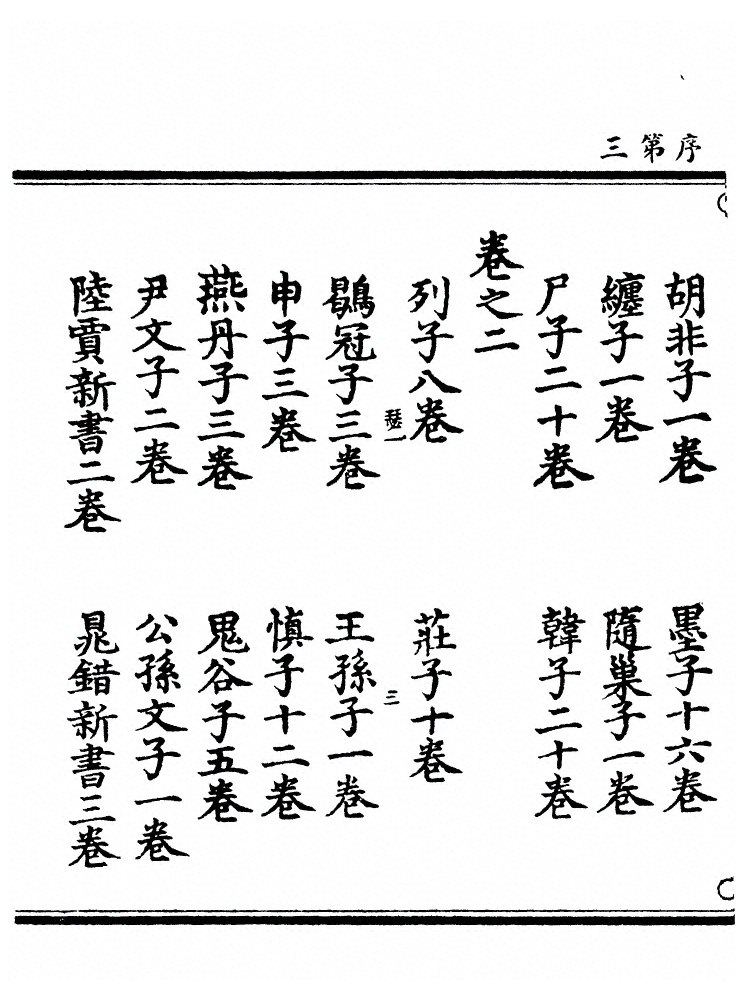 序第三
胡非子一卷 墨子十六卷
纏子一卷 隨巢子一卷
尸子二十卷 韓子二十卷
卷之二
列子八卷 莊子十卷
一 三
鶡冠子三卷 王孫子一卷
申子三卷 慎子十二卷
燕丹子三卷 鬼谷子五卷
尹文子二卷 公孫文子一卷
陸賈新書二卷 晁錯新書三卷